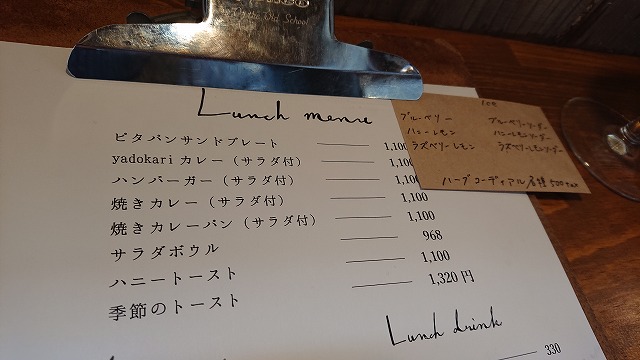 Old School
Lunch menu
ピタパンサンドプレート 1,100
yadokari カレー（サラダ付） 1,100
ハンバーガー（サラダ付） 1,100
焼きカレー（サラダ付） 1,100
焼きカレーパン（サラダ付） 1,100
サラダボウル 968
ハニートースト 1,100
季節のトースト 1,320円
Lunch drink
330
Ice
ブルーベリー ブルーベリーソーダー
ハニーレモン ハニーレモンソーダー
ラズベリーレモン ラズベリーレモンソーダー
ハーブコーディアル各種500